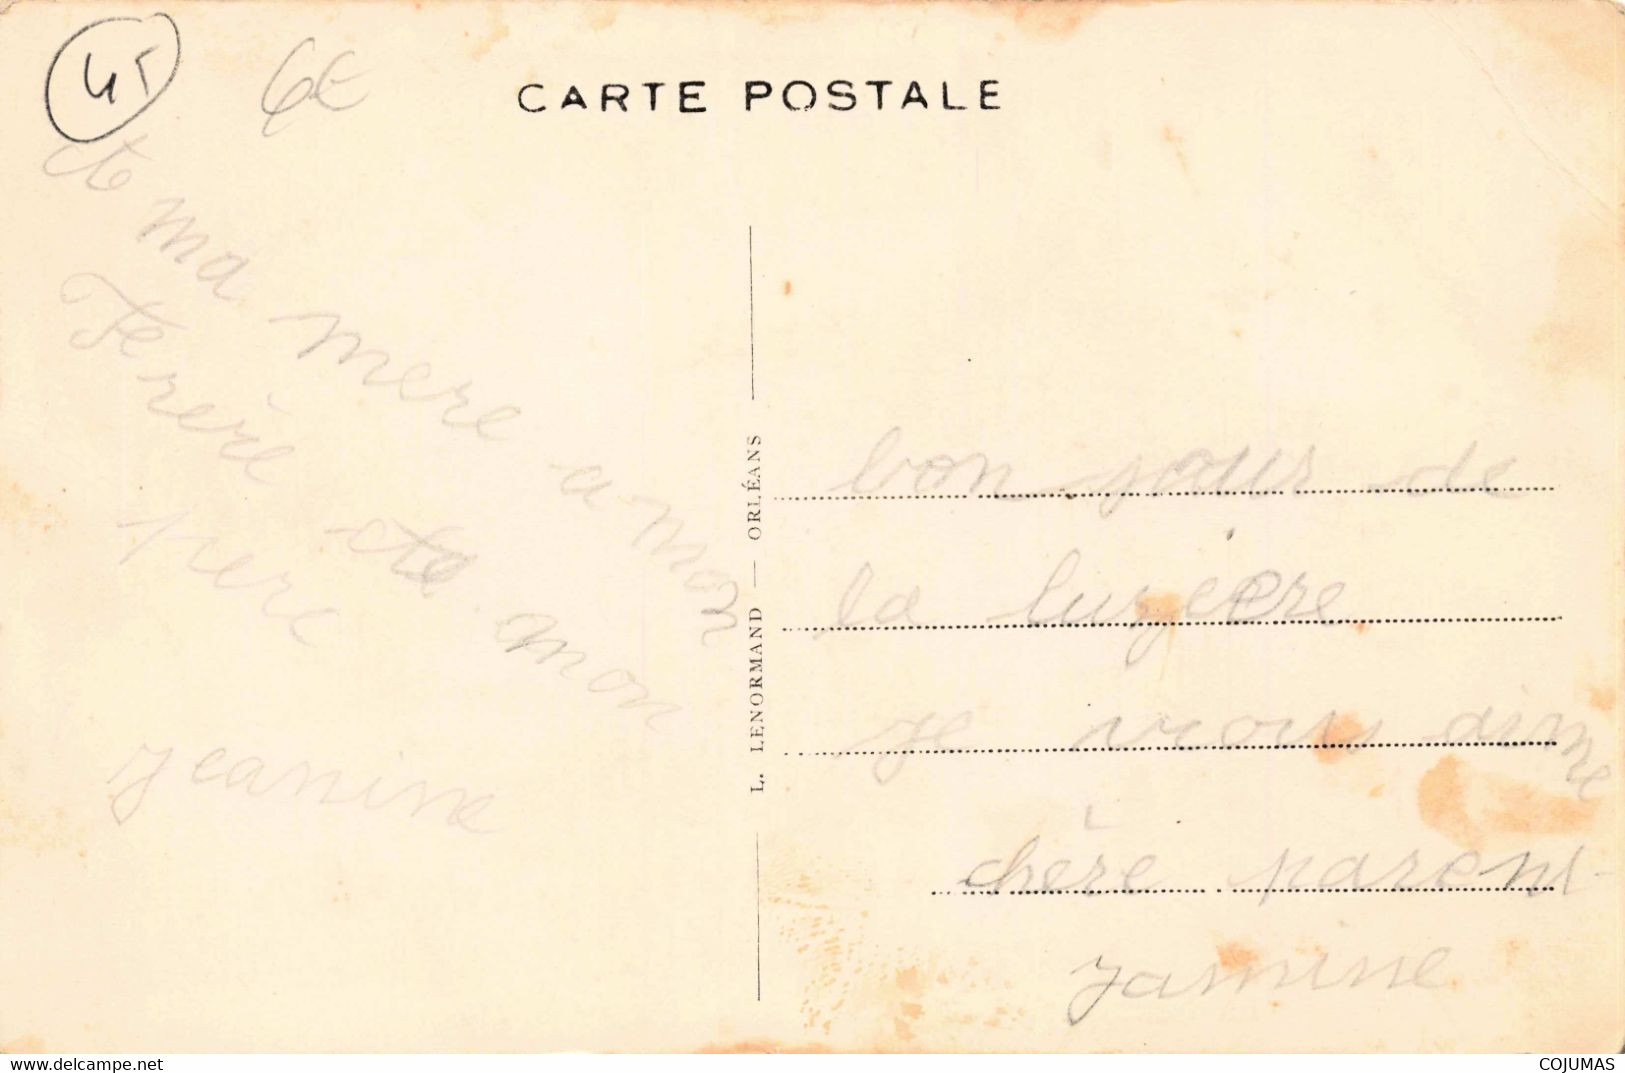 45
6€
CARTE POSTALE
ete ma mere a mon
Ferère ete mon
pere
jeanine
L. LENORMAND — ORLÉANS
bon jour de
la luzeere
je vous aime
chère parent
janine
www.delcampe.net
COJUMAS